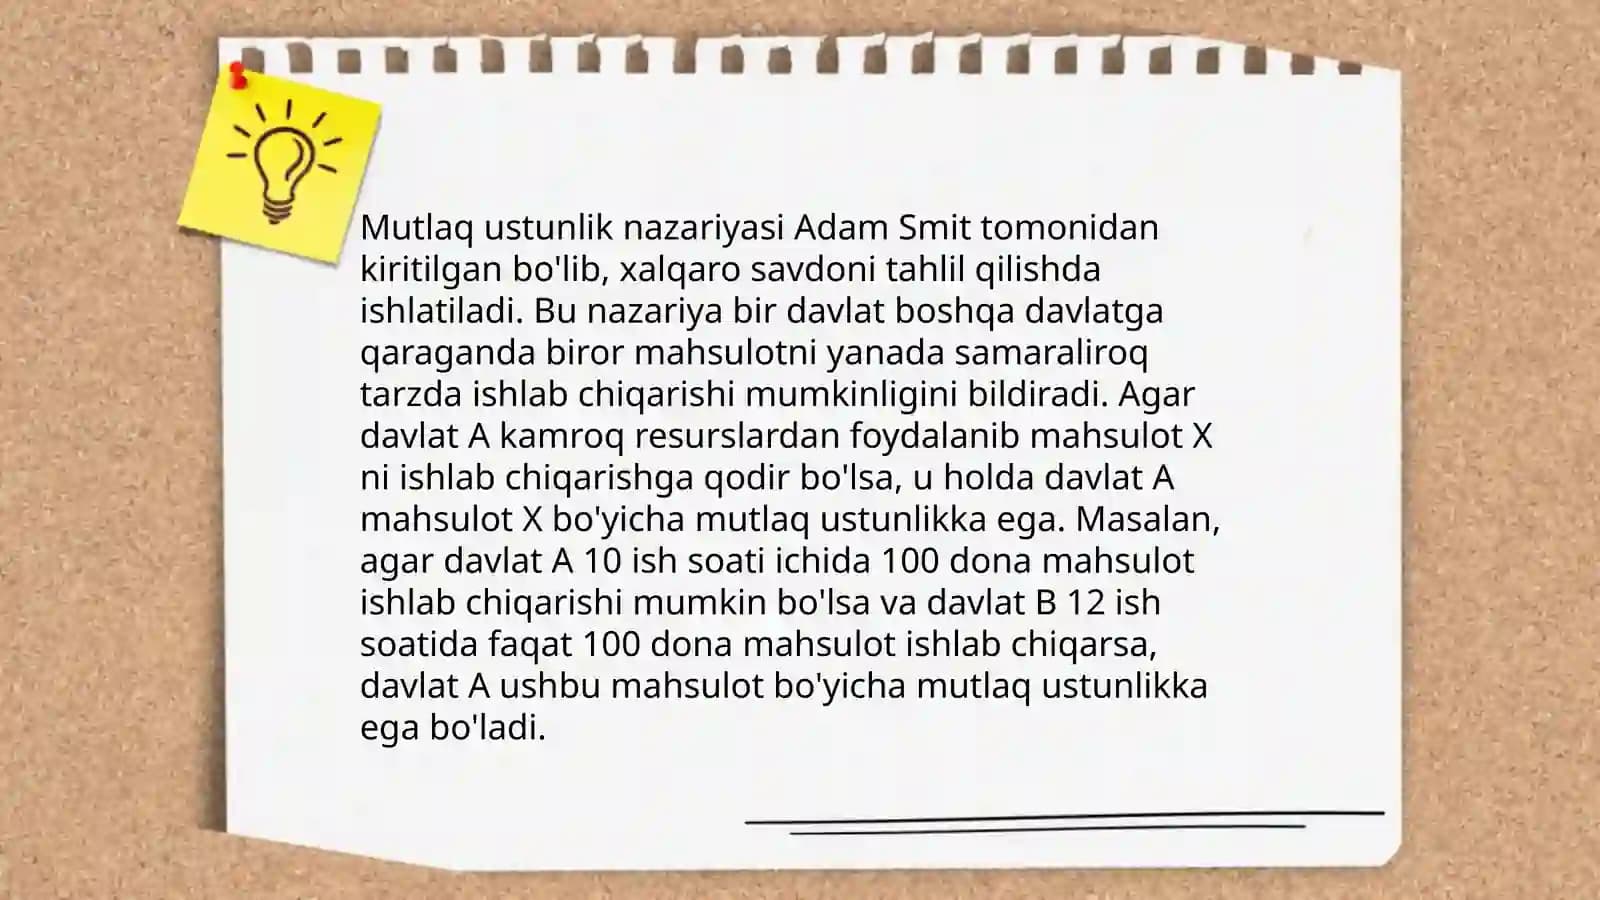 Mutlaq ustunlik nazariyasi Adam Smit tomonidan
kiritilgan bo'lib, xalqaro savdoni tahlil qilishda
ishlatiladi. Bu nazariya bir davlat boshqa davlatga
qaraganda biror mahsulotni yanada samaraliroq
tarzda ishlab chiqarishi mumkinligini bildiradi. Agar
davlat A kamroq resurslardan foydalanib mahsulot X
ni ishlab chiqarishga qodir bo'lsa, u holda davlat A
mahsulot X bo'yicha mutlaq ustunlikka ega. Masalan,
agar davlat A 10 ish soati ichida 100 dona mahsulot
ishlab chiqarishi mumkin bo'lsa va davlat B 12 ish
soatida faqat 100 dona mahsulot ishlab chiqarsa,
davlat A ushbu mahsulot bo'yicha mutlaq ustunlikka
ega bo'ladi.